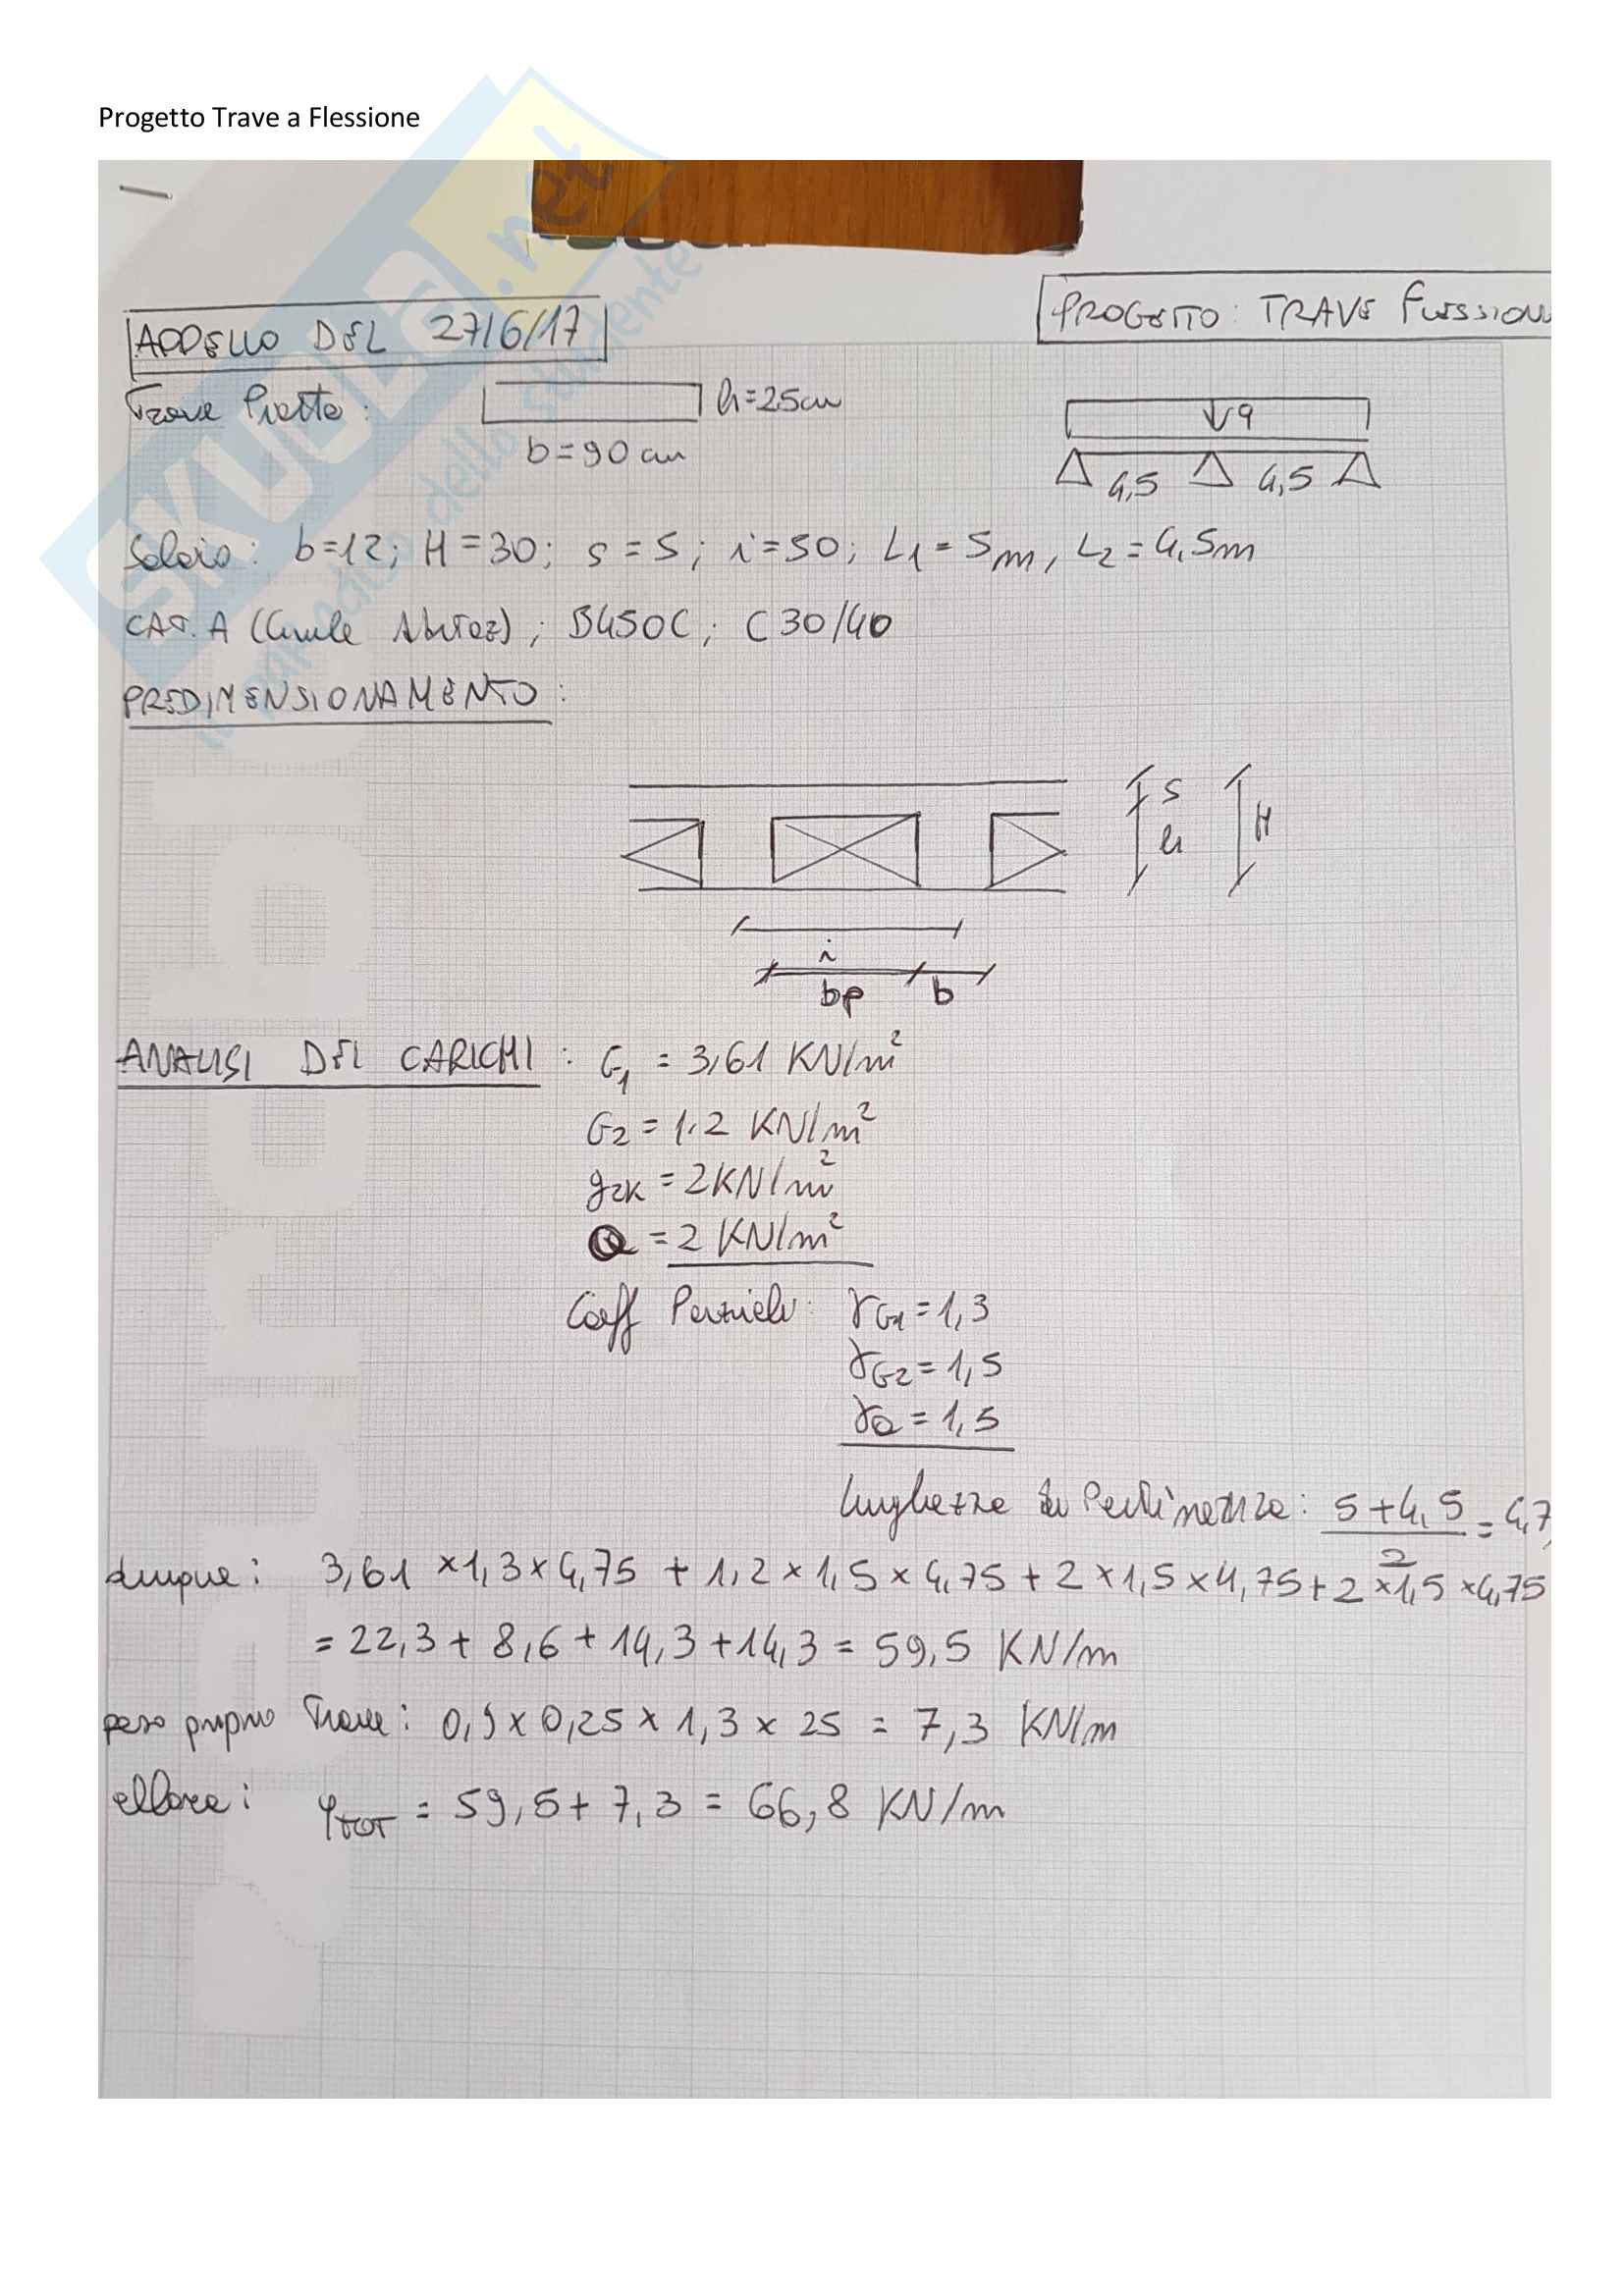 Progetto Trave a Flessione
SKUOLA.net
il paradiso dello studente
APPELLO DEL 27/6/17
PROGETTO: TRAVE FLESSION
Trave Piatta: h=25cm
b=90 cm
↓q
4,5 4,5
Solaio: b=12; H=30; s=5; i=50; L1=5m, L2=4,5m
CAT. A (Civile Abitaz); B450C; C30/40
PREDIMENSIONAMENTO:
s
h
H
i
bp b
ANALISI DEI CARICHI: G1 = 3,61 KN/m²
G2 = 1.2 KN/m²
g2K = 2KN/m²
Q = 2 KN/m²
Coeff Parziali: γG1=1,3
γG2=1,5
γQ=1,5
lunghezza di Pertinenza: 5+4,5/2 = 4,7
dunque: 3,61 ×1,3×4,75 + 1,2×1,5×4,75+2×1,5×4,75+2×1,5×4,75
= 22,3 + 8,6 + 14,3 +14,3 = 59,5 KN/m
peso proprio Trave: 0,9 x 0,25 x 1,3 x 25 = 7,3 KN/m
allora: qTOT = 59,5+ 7,3 = 66,8 KN/m